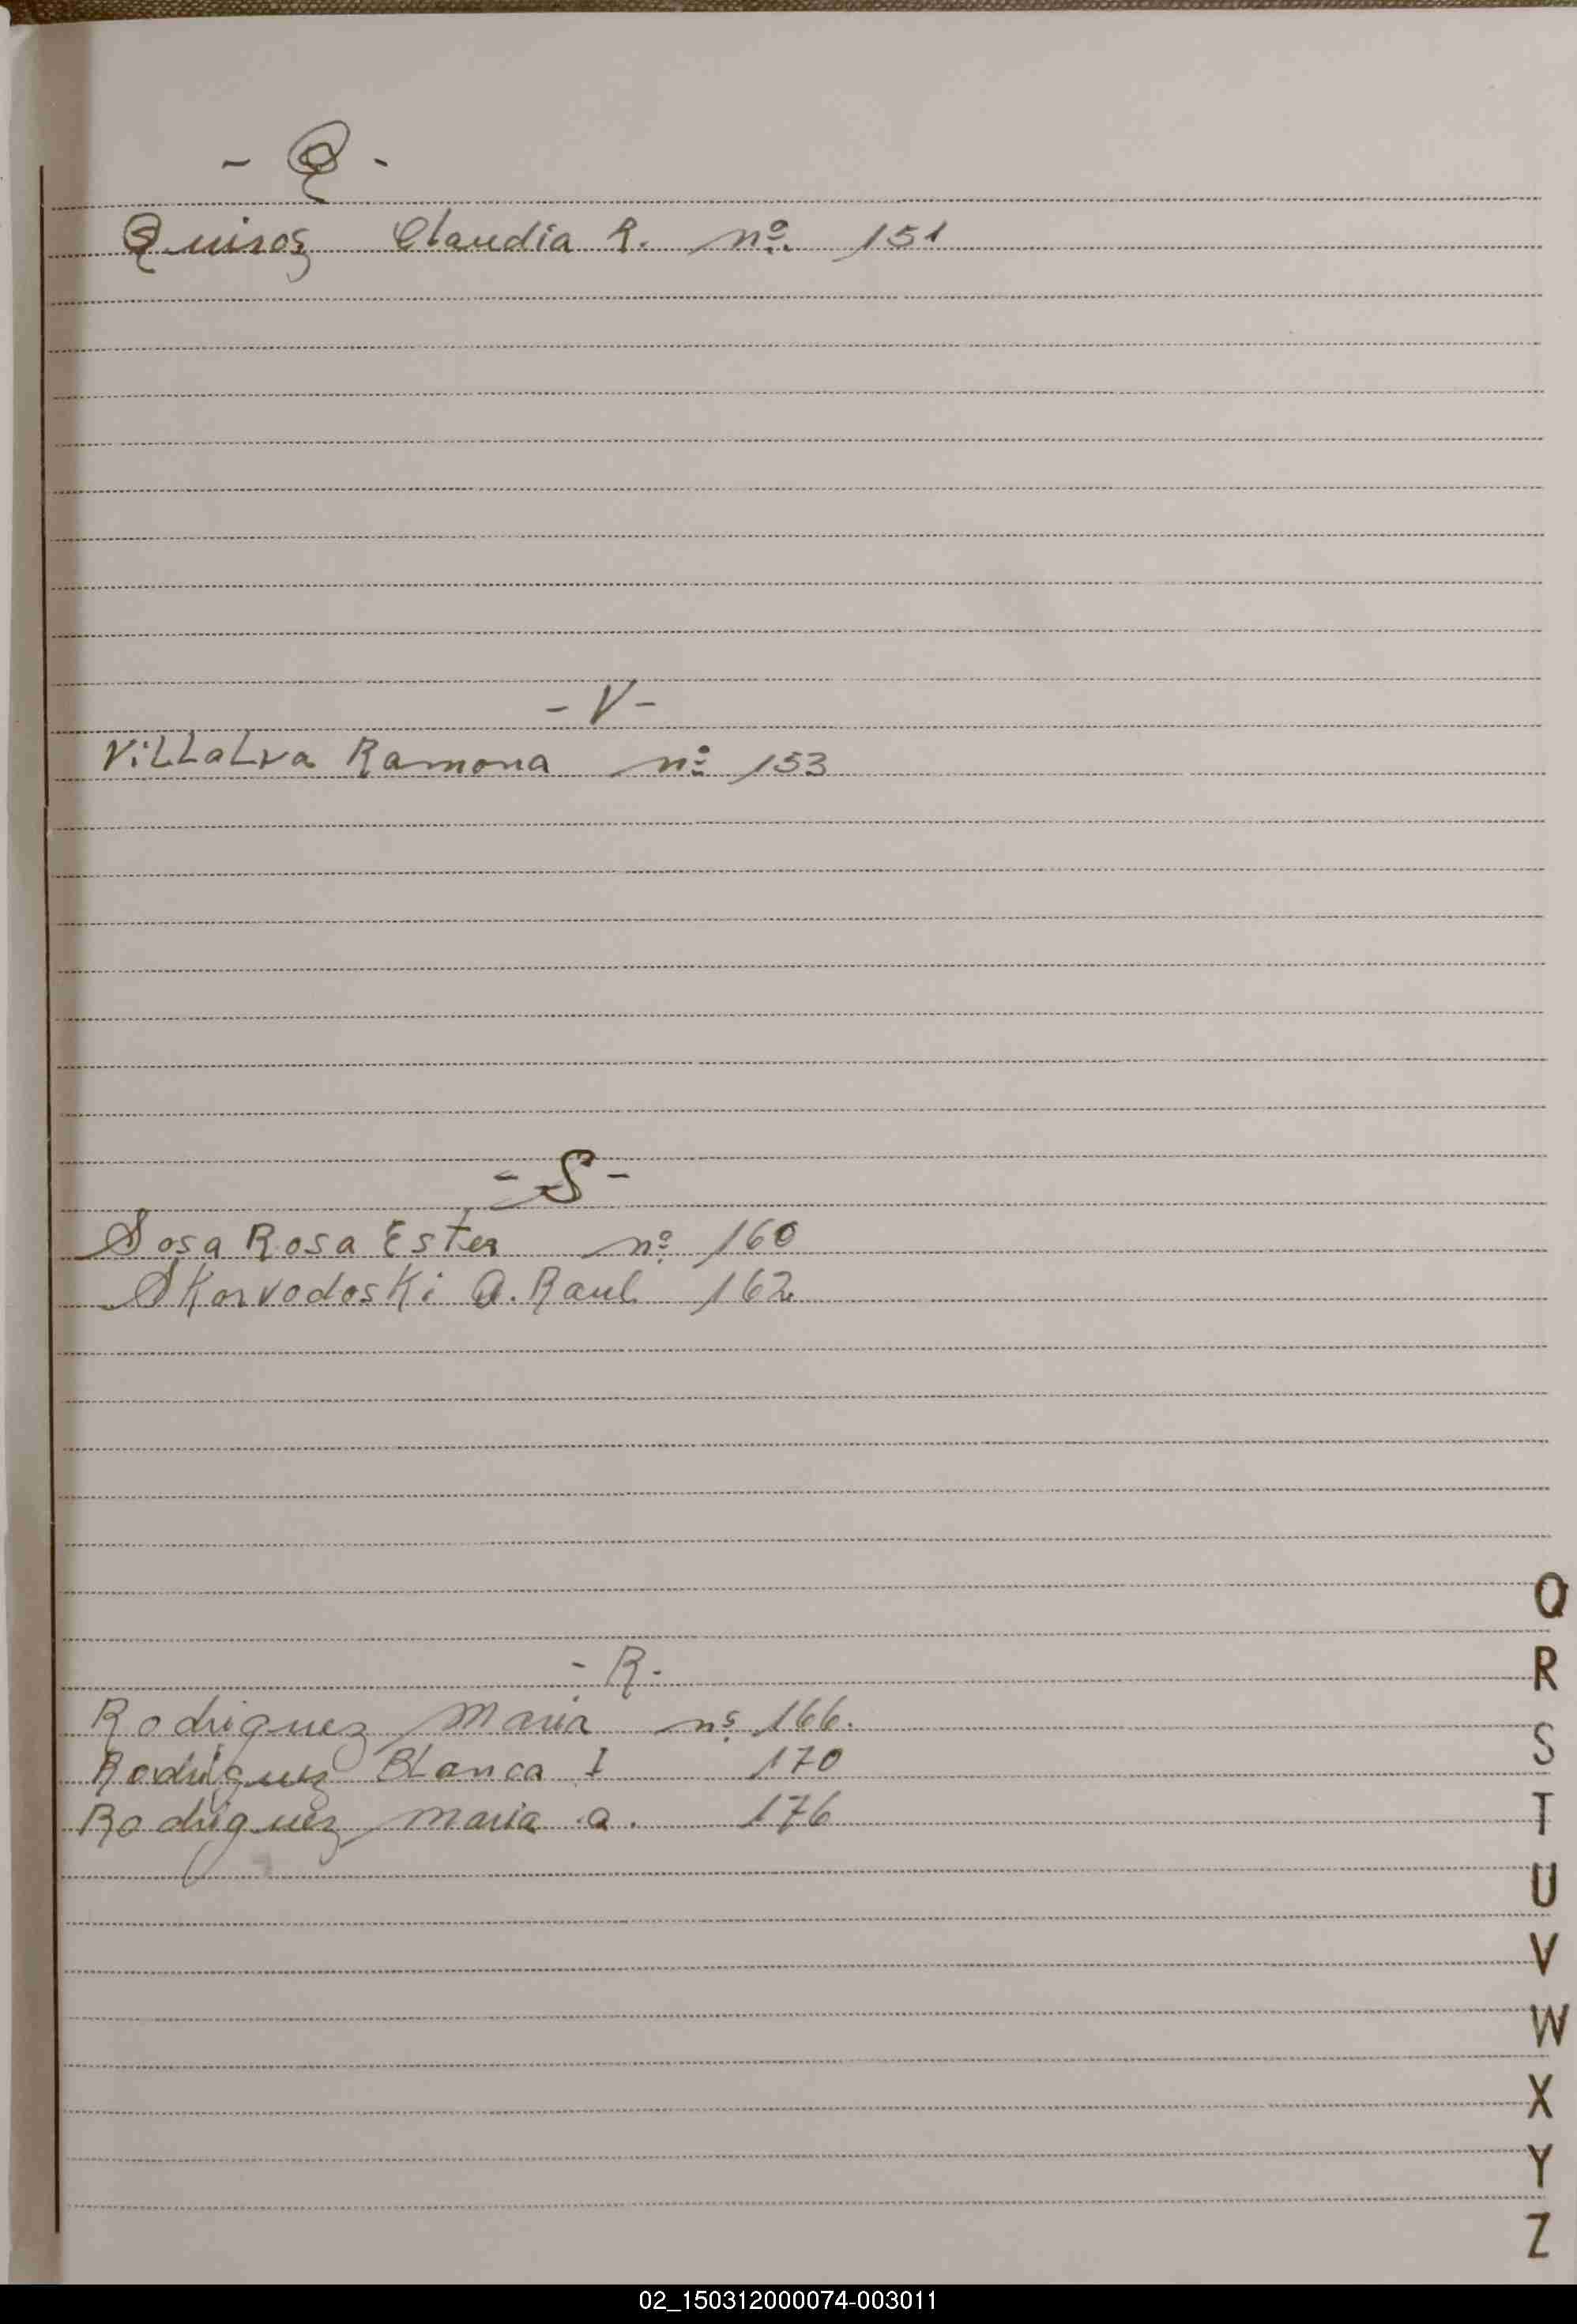 - Q -
Quiros Claudia R. nº 151
- V -
Villalva Ramona nº 153
- S -
Sosa Rosa Ester nº 160
Skorvodoski A. Raul 162
- R -
Rodriguez Maria nº 166.
Rodriguez Blanca I 170
Rodriguez Maria a. 176
Q
R
S
T
U
V
W
X
Y
Z
02_150312000074-003011